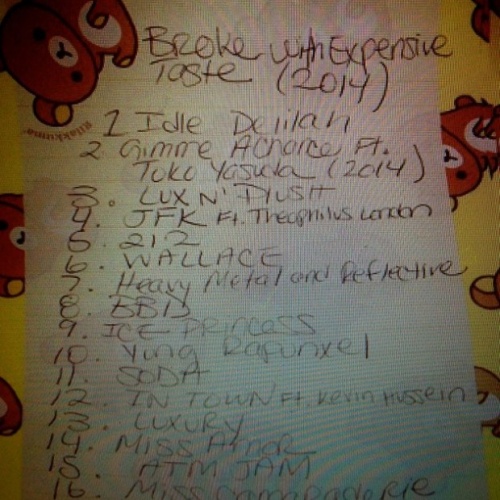 Broke with Expensive
Taste (2014)
1 Idle Delilah
2 Gimme A Chance Ft.
Toko Yasuda (2014)
3. LUX N' Plush
4. JFK Ft. Theophilus London
5. 212
6. WALLACE
7. Heavy Metal and Reflective
8. BBD
9. ICE PRINCESS
10. Yung Rapunxel
11. SODA
12. IN TOWN Ft. Kevin Hussein
13. LUXURY
14. Miss Amor
15. ATM JAM
16. Miss Camaraderie
Rilakkuma